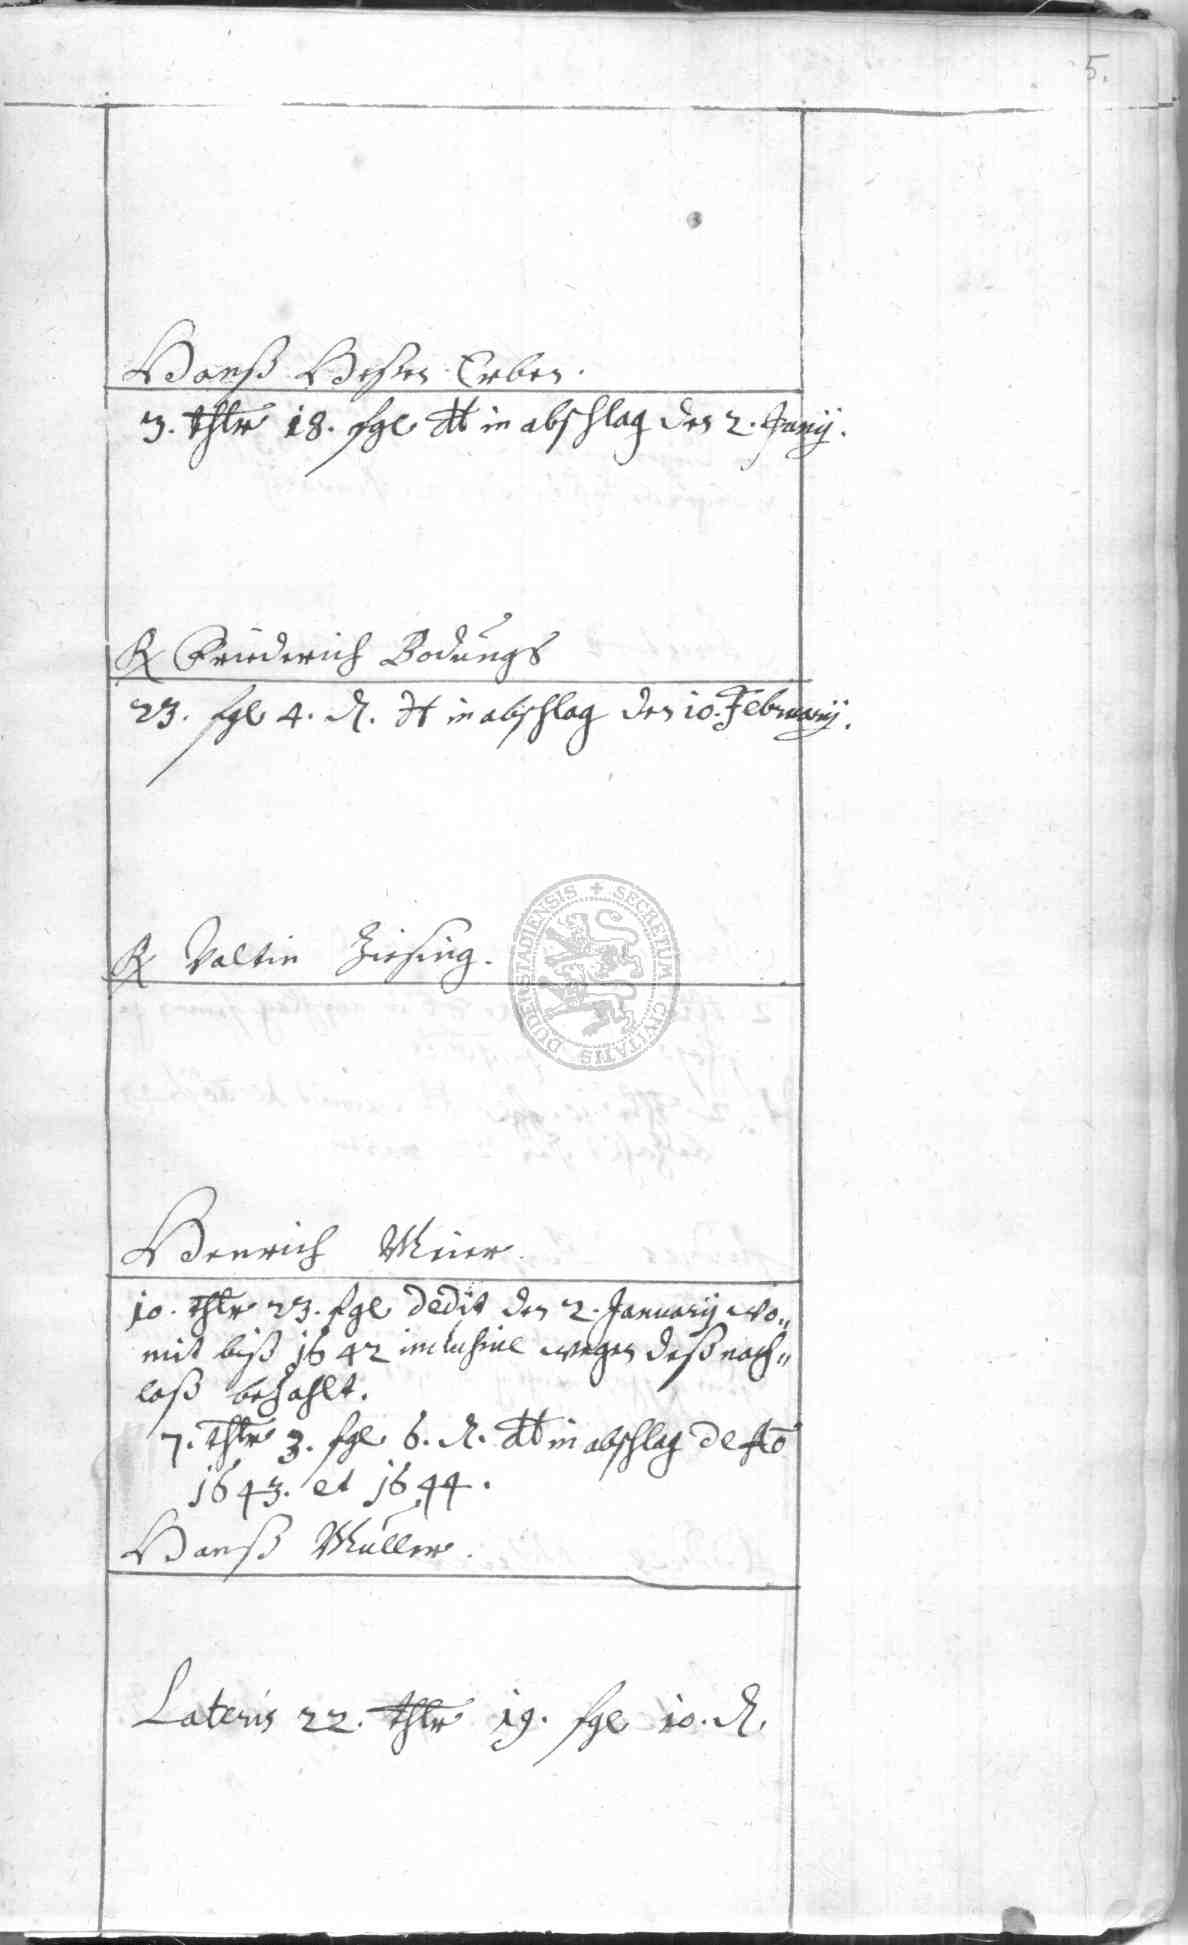 5.
Hanß Hessen Erben.
3. thlr 18. sgl dt in abschlag den 2. Junij.
R Friederich Bodungs
23. sgl 4. d. dt in abschlag den 10. Februarij.
R Valtin Ziesing.
DUDERSTADIENSIS + SECRETUM CIVITATIS
Henrich Meier.
10. thlr 23. sgl dedit den 2. Januarij wo„
mit biß 1642 inclusive wegen deß nach„
laß bezahlt.
7. thlr 3. sgl 6. d. dt in abschlag de Ao
1643. et 1644.
Hanß Müller.
Lateris 22. thlr 19. sgl 10. d.